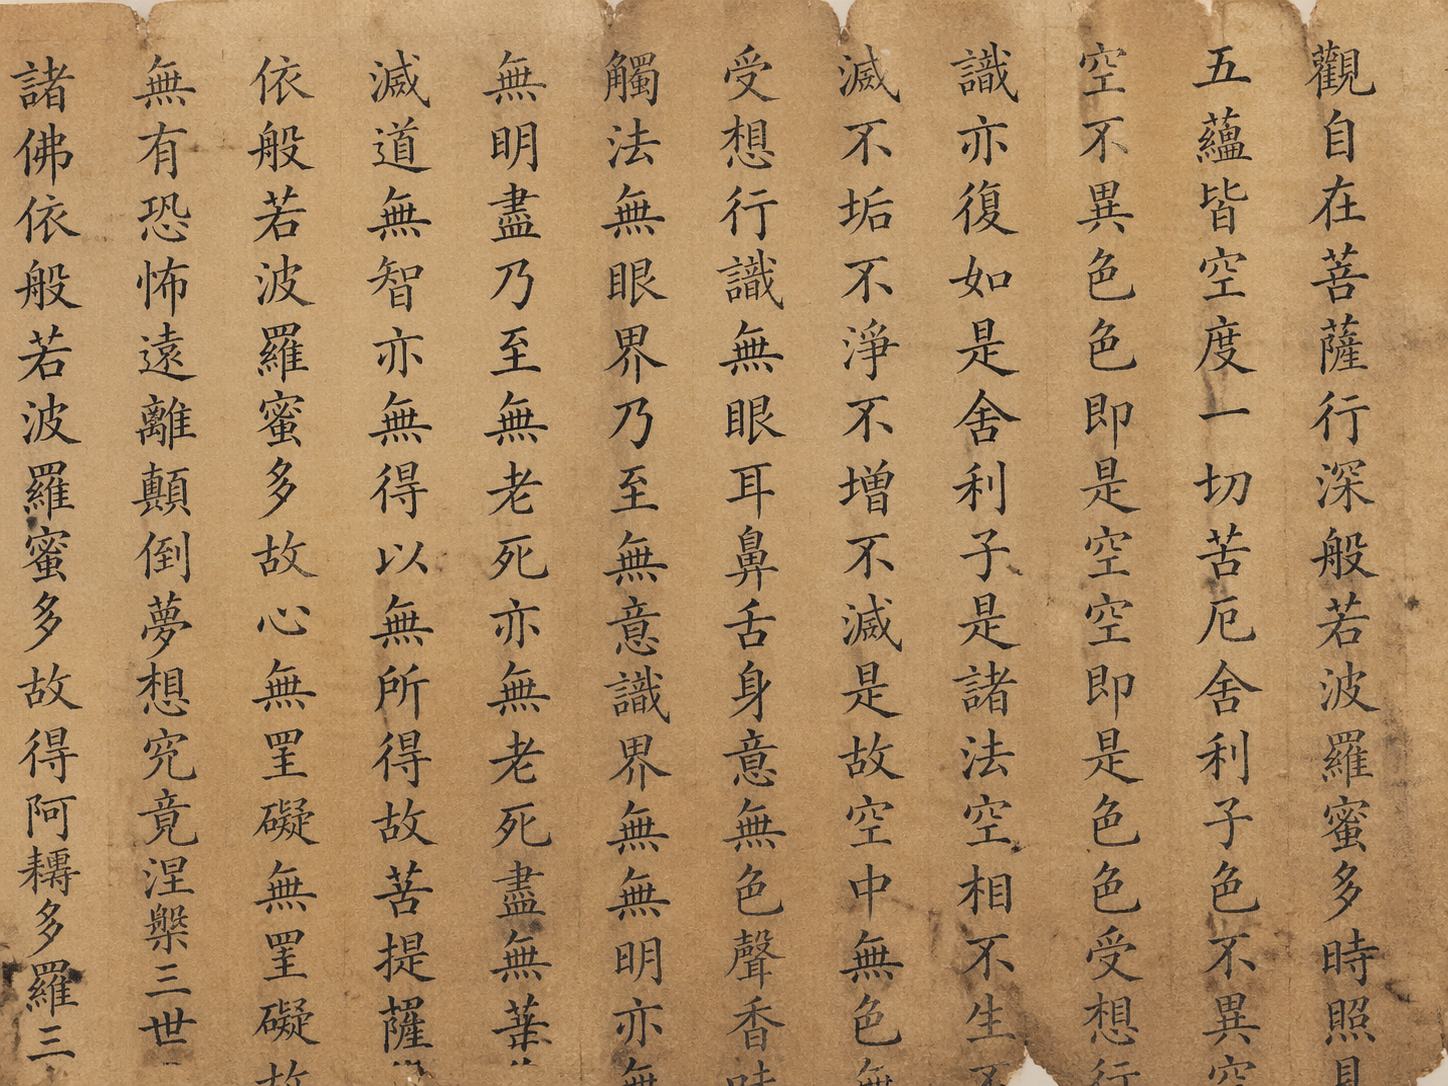 觀自在菩薩行深般若波羅蜜多時照
五蘊皆空度一切苦厄舍利子色不異空
空不異色色即是空空即是色色受想行
識亦復如是舍利子是諸法空相不生不
滅不垢不淨不增不滅是故空中無色無
受想行識無眼耳鼻舌身意無色聲香味
觸法無眼界乃至無意識界無無明亦無
無明盡乃至無老死亦無老死盡無
滅道無智亦無得以無所得故苦提薩
依般若波羅蜜多故心無罣礙無罣礙故
無有恐怖遠離顛倒夢想究竟涅槃三世
諸佛依般若波羅蜜多故得阿耨多羅三